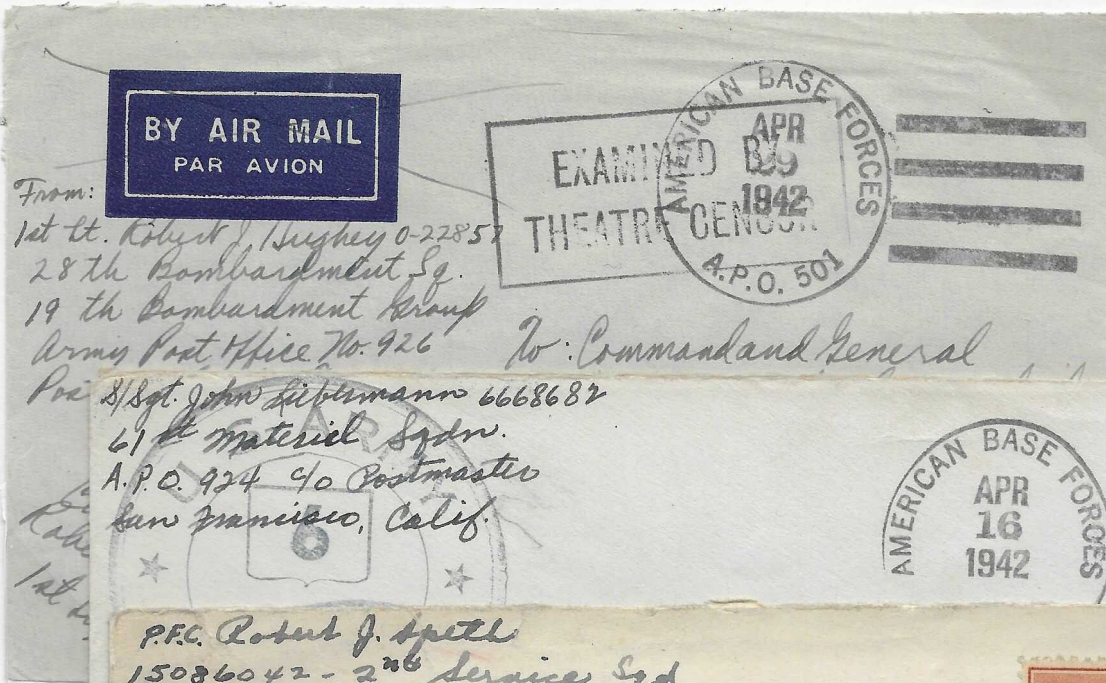 BY AIR MAIL
PAR AVION
EXAMINED BY
THEATRE CENSOR
AMERICAN BASE FORCES
APR
29
1942
A.P.O. 501
From:
1st Lt. Robert J. Hughey O-22857
28th Bombardment Sq.
19th Bombardment Group
Army Post Office No. 926
Pos
To: Commandand General
S/Sgt. John Liebermann 6668682
61st Materiel Sqdn.
A.P.O. 924 c/o Postmaster
San Francisco, Calif.
U.S. ARMY
6
AMERICAN BASE FORCES
APR
16
1942
Robe
1st
P.F.C. Robert J. Speth
15086042 - 2nd Service Sqd